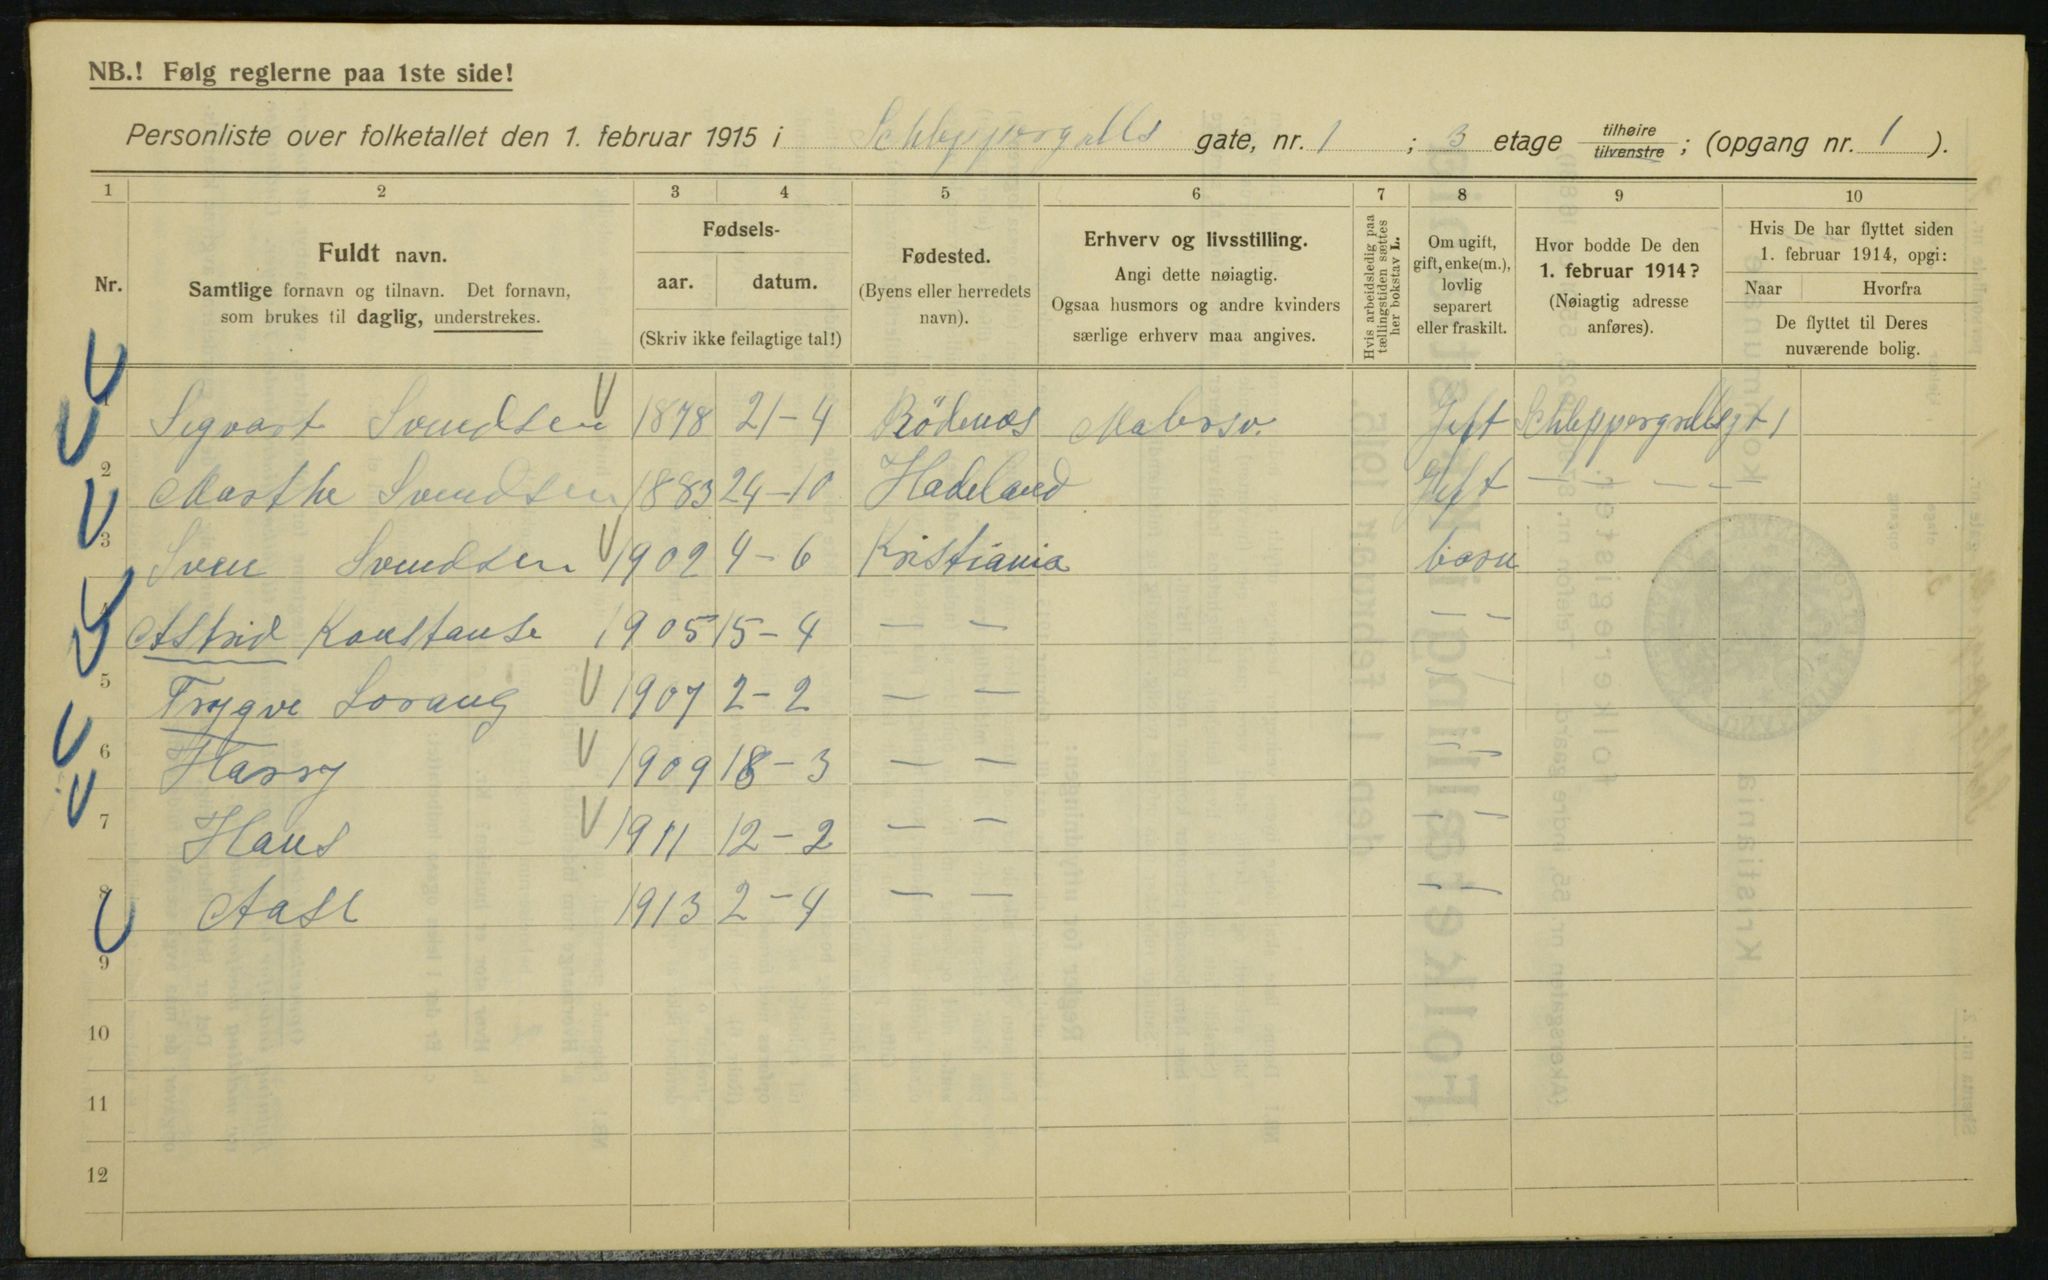 NB.! Følg reglerne paa 1ste side!
Personliste over folketallet den 1. februar 1915 i Schleppergrells gate, nr. 1 ; 3 etage tilhøire tilvenstre ; (opgang nr. 1 ).
1 2 3 4 5 6 7 8 9 10
Nr.
Fuldt navn.
Samtlige fornavn og tilnavn. Det fornavn,
som brukes til daglig, understrekes.
Fødsels-
aar. datum.
(Skriv ikke feilagtige tal!)
Fødested.
(Byens eller herredets
navn).
Erhverv og livsstilling.
Angi dette nøiagtig.
Ogsaa husmors og andre kvinders
særlige erhverv maa angives.
Hvis arbeidsledig paa
tællingstiden sættes
her bokstav L.
Om ugift,
gift, enke(m.),
lovlig
separert
eller fraskilt.
Hvor bodde De den
1. februar 1914?
(Nøiagtig adresse
anføres).
Hvis De har flyttet siden
1. februar 1914, opgi:
Naar Hvorfra
De flyttet til Deres
nuværende bolig.
1 Sigvart Svendsen 1878 21-4 Rödenes Malersv. Gift Schleppergrellsgt 1
2 Marthe Svendsen 1883 24-10 Hadeland Gift — — — —
3 Sven Svendsen 1902 4-6 Kristiania barn
4 Astrid Konstanse 1905 15-4 — — — —
5 Trygve Lorang 1907 2-2 — — — —
6 Harry 1909 18-3 — — — —
7 Hans 1911 12-2 — — — —
8 Aase 1913 2-4 — — — —
9
10
11
12